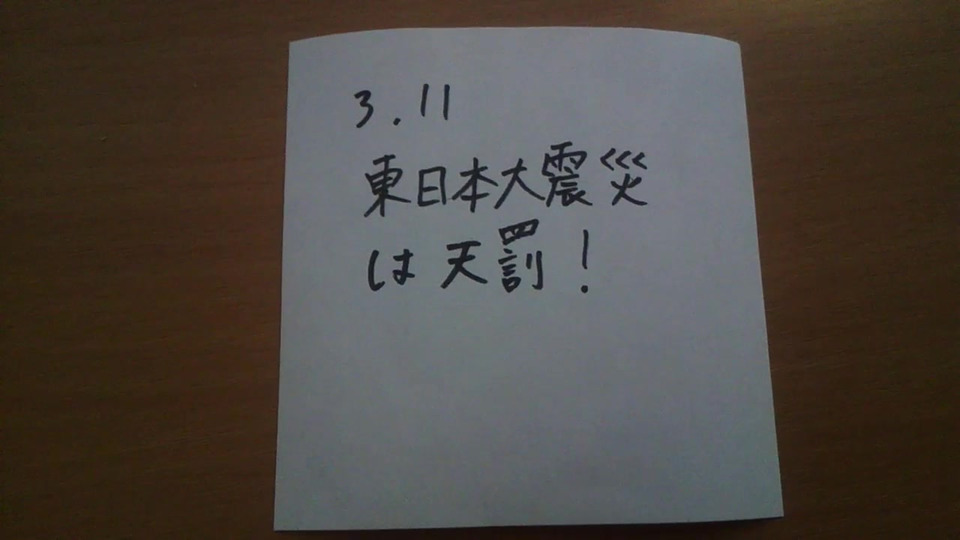 3.11
東日本大震災
は天罰!